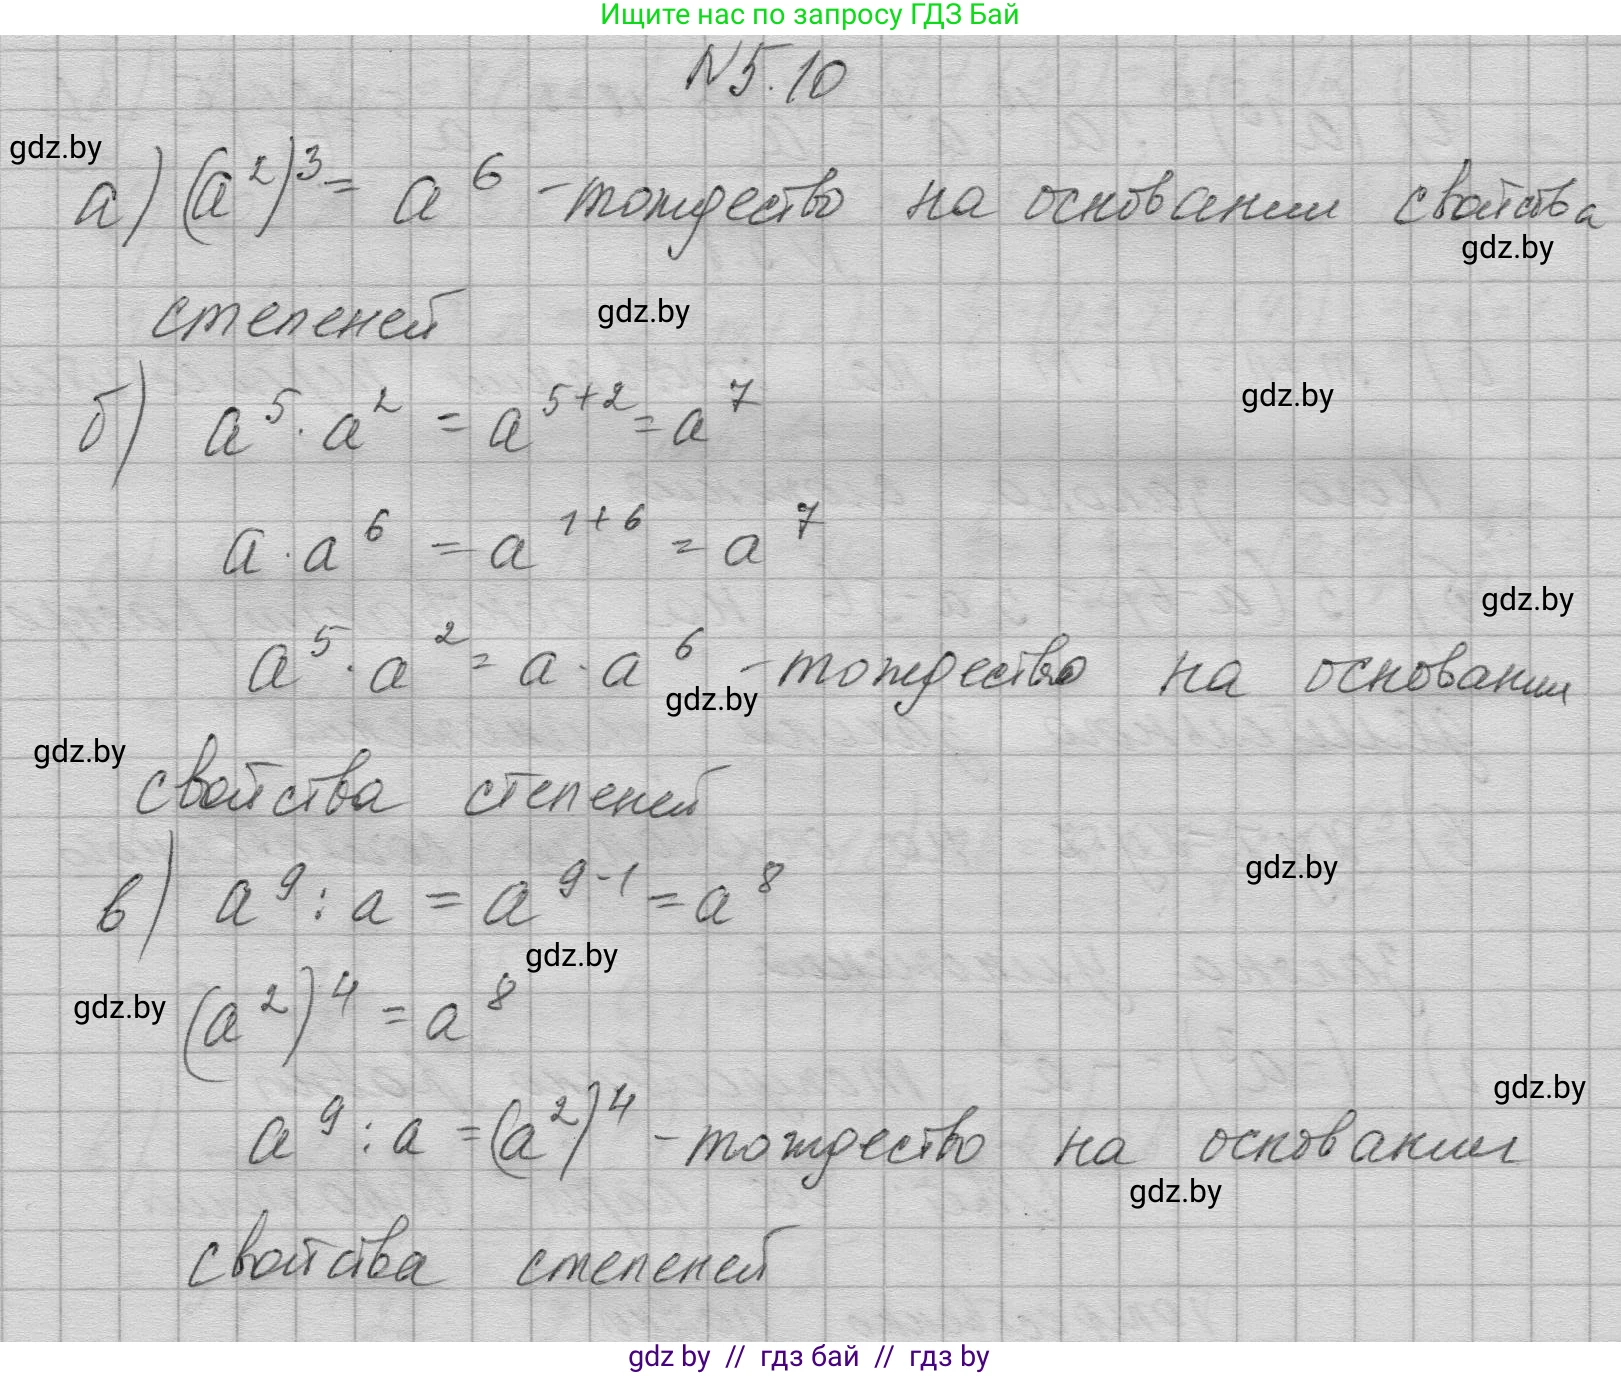 Ищите нас по запросу ГДЗ Бай
N 5.10
gdz.by
а) (a²)³ = a⁶ - тождество на основании свойства
gdz.by
степеней
gdz.by
gdz.by
б) a⁵ · a² = a⁵⁺² = a⁷
a · a⁶ = a¹⁺⁶ = a⁷
gdz.by
a⁵ · a² = a · a⁶ - тождество на основании
gdz.by
gdz.by
свойства степеней
gdz.by
в) a⁹ : a = a⁹⁻¹ = a⁸
gdz.by
gdz.by
(a²)⁴ = a⁸
gdz.by
a⁹ : a = (a²)⁴ - тождество на основании
gdz.by
свойства степеней
gdz by // гдз бай // гдз by